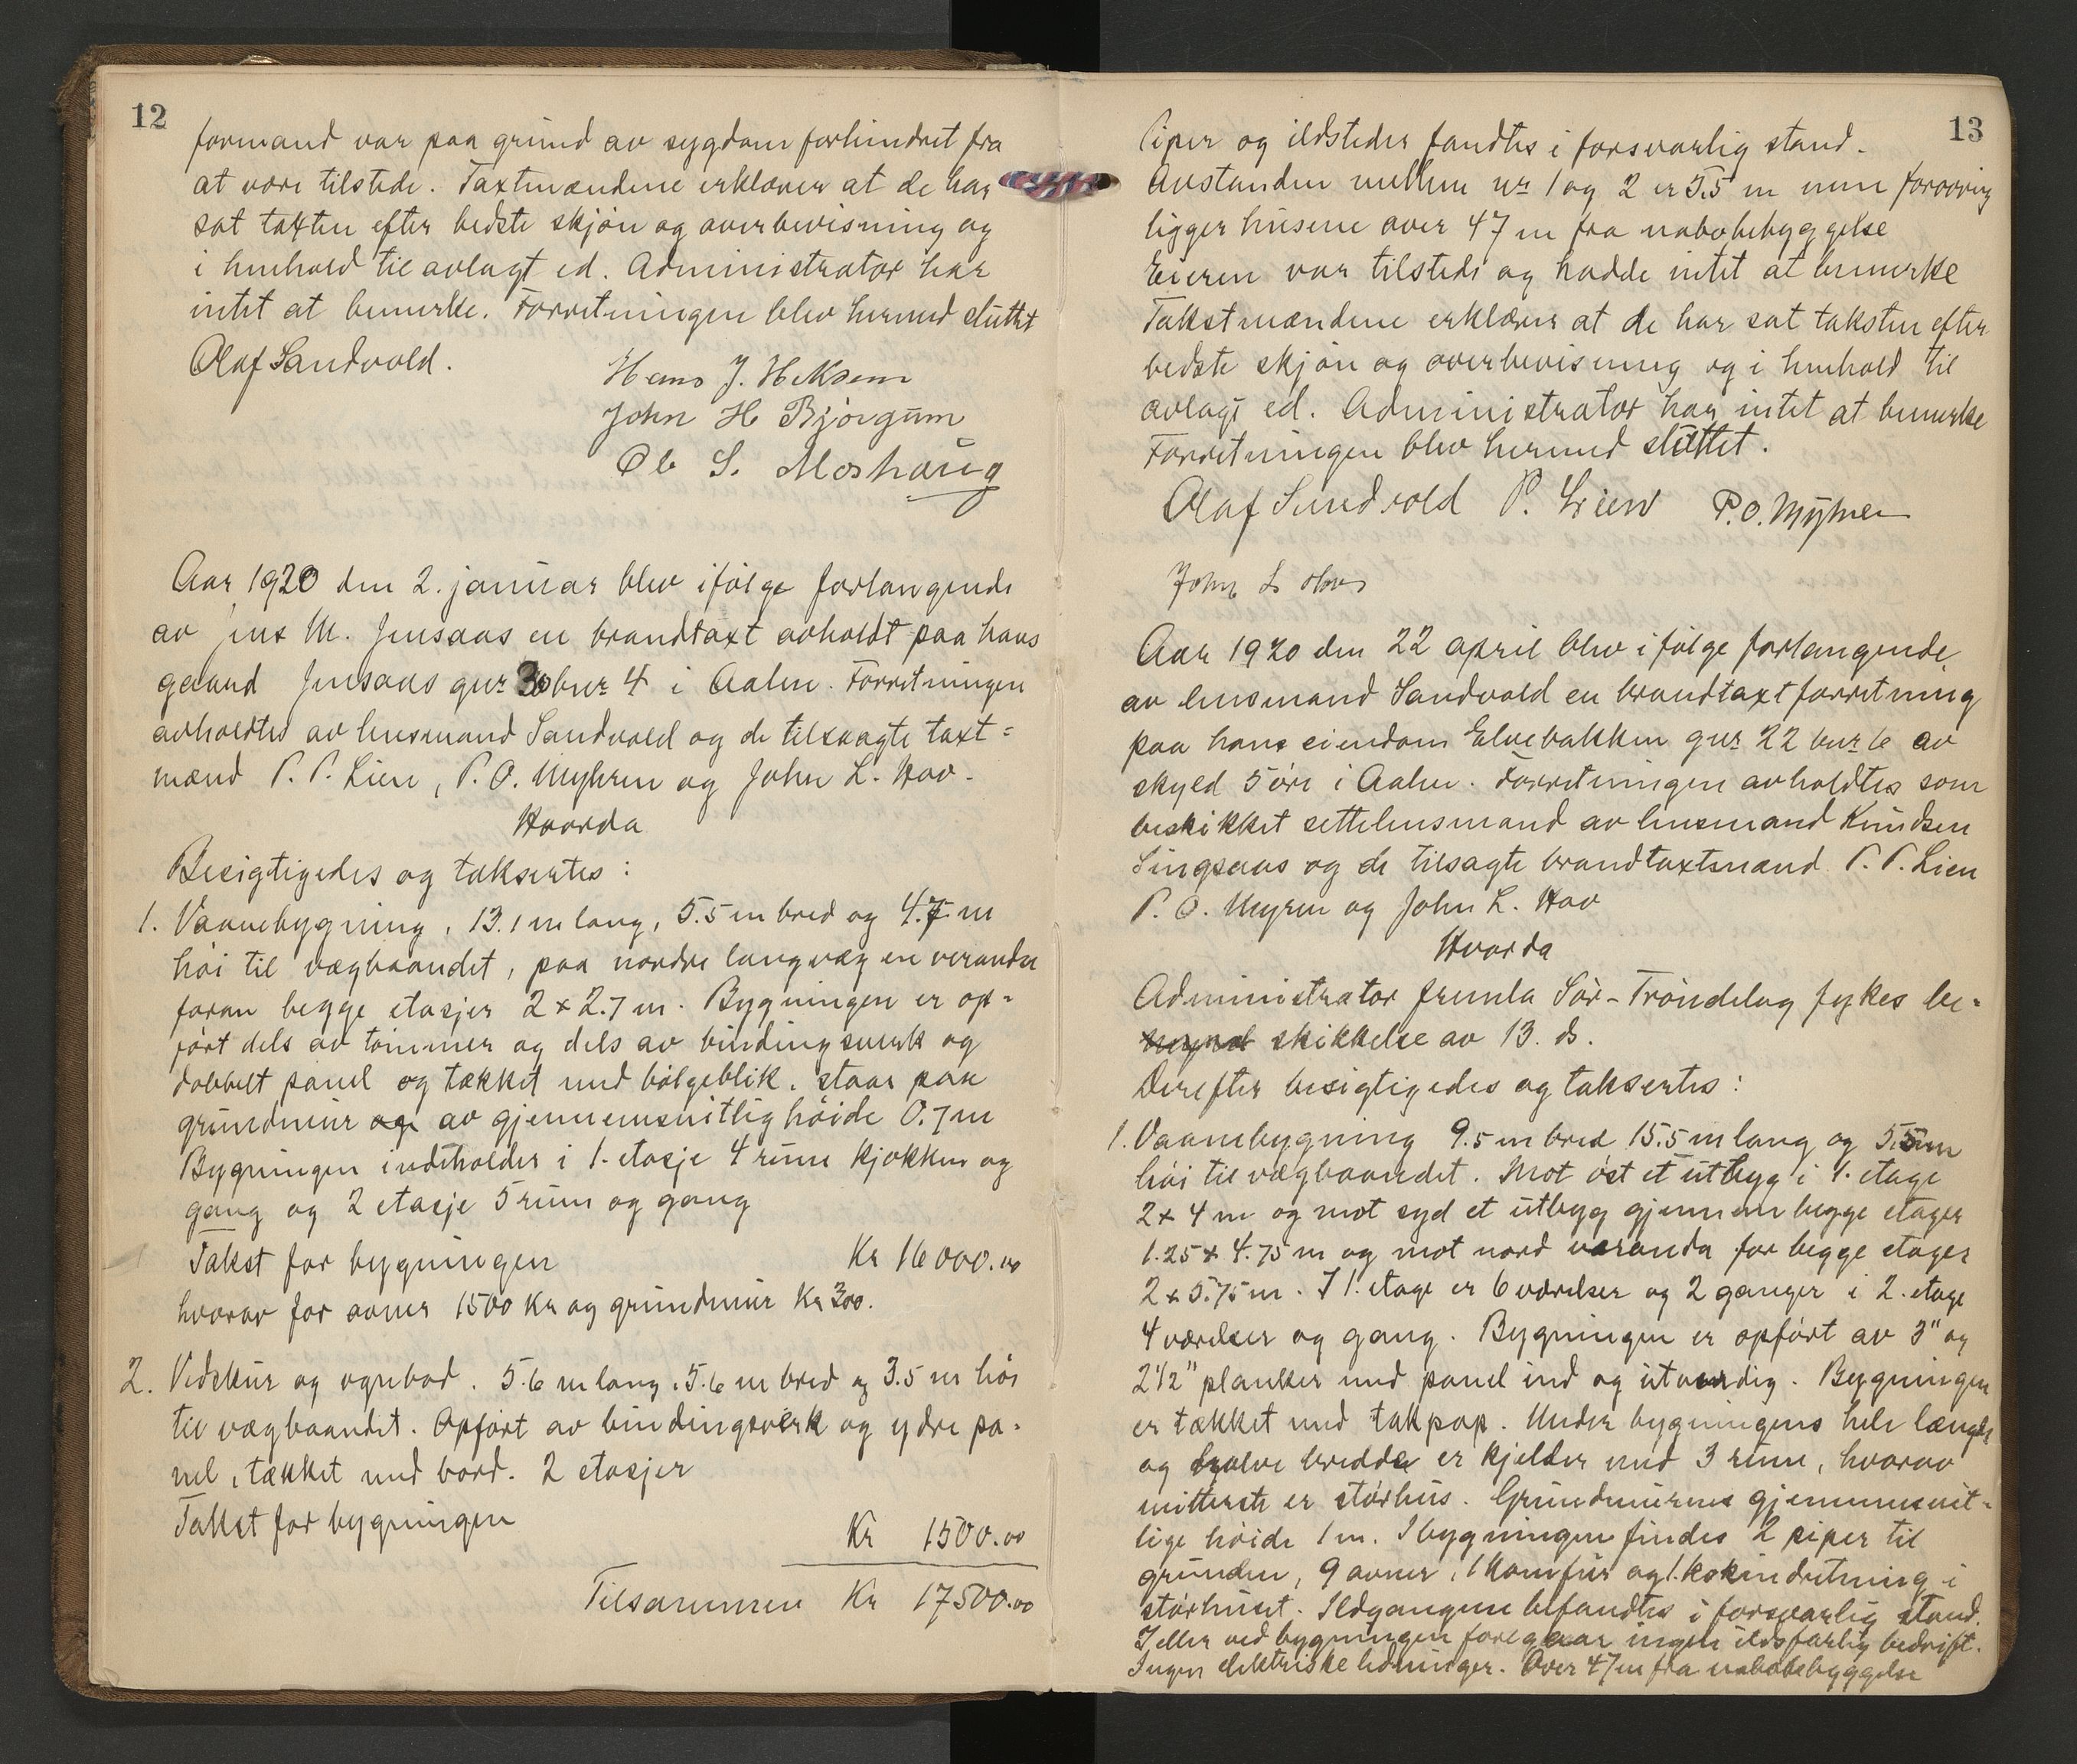 12
formand var paa grund av sygdom forhindret fra
at være tilstede. Taxtmændene erklærer at de har
sat taxten efter bedste skjøn og overbevisning og
i henhold til avlagt ed. Administrator har
intet at bemerke. Forretningen blev hermed sluttet
Olaf Sandvold.
Hans J. Heksem
John H Bjørgum
Ole S. Moshaug
Aar 1920 den 2. januar blev ifølge forlangende
av Jens M. Jensaas en brandtaxt avholdt paa hans
gaard Jensaas gnr 30 bnr 4 i Aalen. Forretningen
avholdtes av lensmand Sandvold og de tilsagte taxt=
mænd P. P. Lien, P. O. Myhren og John L. Hov.
Hvorda
Besigtigedes og taksertes:
1. Vaanebygning, 13.1 m lang, 5.5 m bred og 4.7 m
høi til vægbaandet, paa nordre langvæg en veranda
foran begge etasjer 2 x 2.7 m. Bygningen er op=
ført dels av tømmer og dels av bindingsverk og
dobbelt panel og tækket med bølgeblik. staar paa
grundmur og av gjennemsnitlig høide 0.7 m
Bygningen indeholder i 1. etasje 4 rum kjøkken og
gang og 2 etasje 5 rum og gang
Takst for bygningen Kr 16000.00
hvorav for ovner 1500 Kr og grundmur Kr 300.
2. Vedskur og vognbod. 5.6 m lang, 5.6 m bred og 3.5 m høi
til vægbaandet. Opført av bindingsverk og ydre pa=
nel, tækket med bord. 2 etasjer
Takst for bygningen
Kr 1500.00
Tilsammen Kr 17500.00
13
Piper og ildsteder fandtes i forsvarlig stand.
Avstanden mellem nr 1 og 2 er 5.5 m men forøvrig
ligger husene over 47 m fra nabobebyggelse
Eieren var tilstede og hadde intet at bemerke
Takstmændene erklærer at de har sat taksten efter
bedste skjøn og overbevisning og i henhold til
avlagt ed. Administrator har intet at bemerke
Forretningen blev hermed sluttet.
Olaf Sandvold P. Lien P. O. Myhren
John L Hov
Aar 1920 den 22 april blev i følge forlangende
av lensmand Sandvold en brandtaxtforretning
paa hans eiendom Elvebakken gnr 22 bnr 6 av
skyld 5 øre i Aalen. Forretningen avholdtes som
beskikket settelensmand av lensmand Knudsen
Singsaas og de tilsagte brandtaxtmænd P. P. Lien
P. O. Myren og John L. Hov
Hvorda
Administrator fremla Sør-Trøndelag fylkes be=
skikkelse av 13. ds.
Derefter besigtigedes og taksertes:
1. Vaanebygning 9.5 m bred 15.5 m lang og 5.5 m
høi til vægbaandet. Mot øst et utbyg i 1. etage
2 x 4 m og mot syd et utbyg gjennem begge etager
1.25 x 4.75 m og mot nord veranda for begge etager
2 x 5.75 m. I 1. etage er 6 værelser og 2 ganger i 2. etage
4 værelser og gang. Bygningen er opført av 3" og
2 1/2" planker med panel ind og utvendig. Bygningen
er tækket med takpap. Under bygningens hele længde
og halve bredde er kjelder med 3 rum, hvorav
mitterste er størhus. Grundmurens gjennemsnit=
lige høide 1 m. I bygningen findes 2 piper til
grunden, 9 ovner, 1 komfur og 1. kokeindretning i
størhuset. Ildgangene befandtes i forsvarlig stand.
I eller ved bygningen foregaar ingen ildsfarlig bedrift.
Ingen elektriske ledninger. Over 47 m fra nabobebyggelse